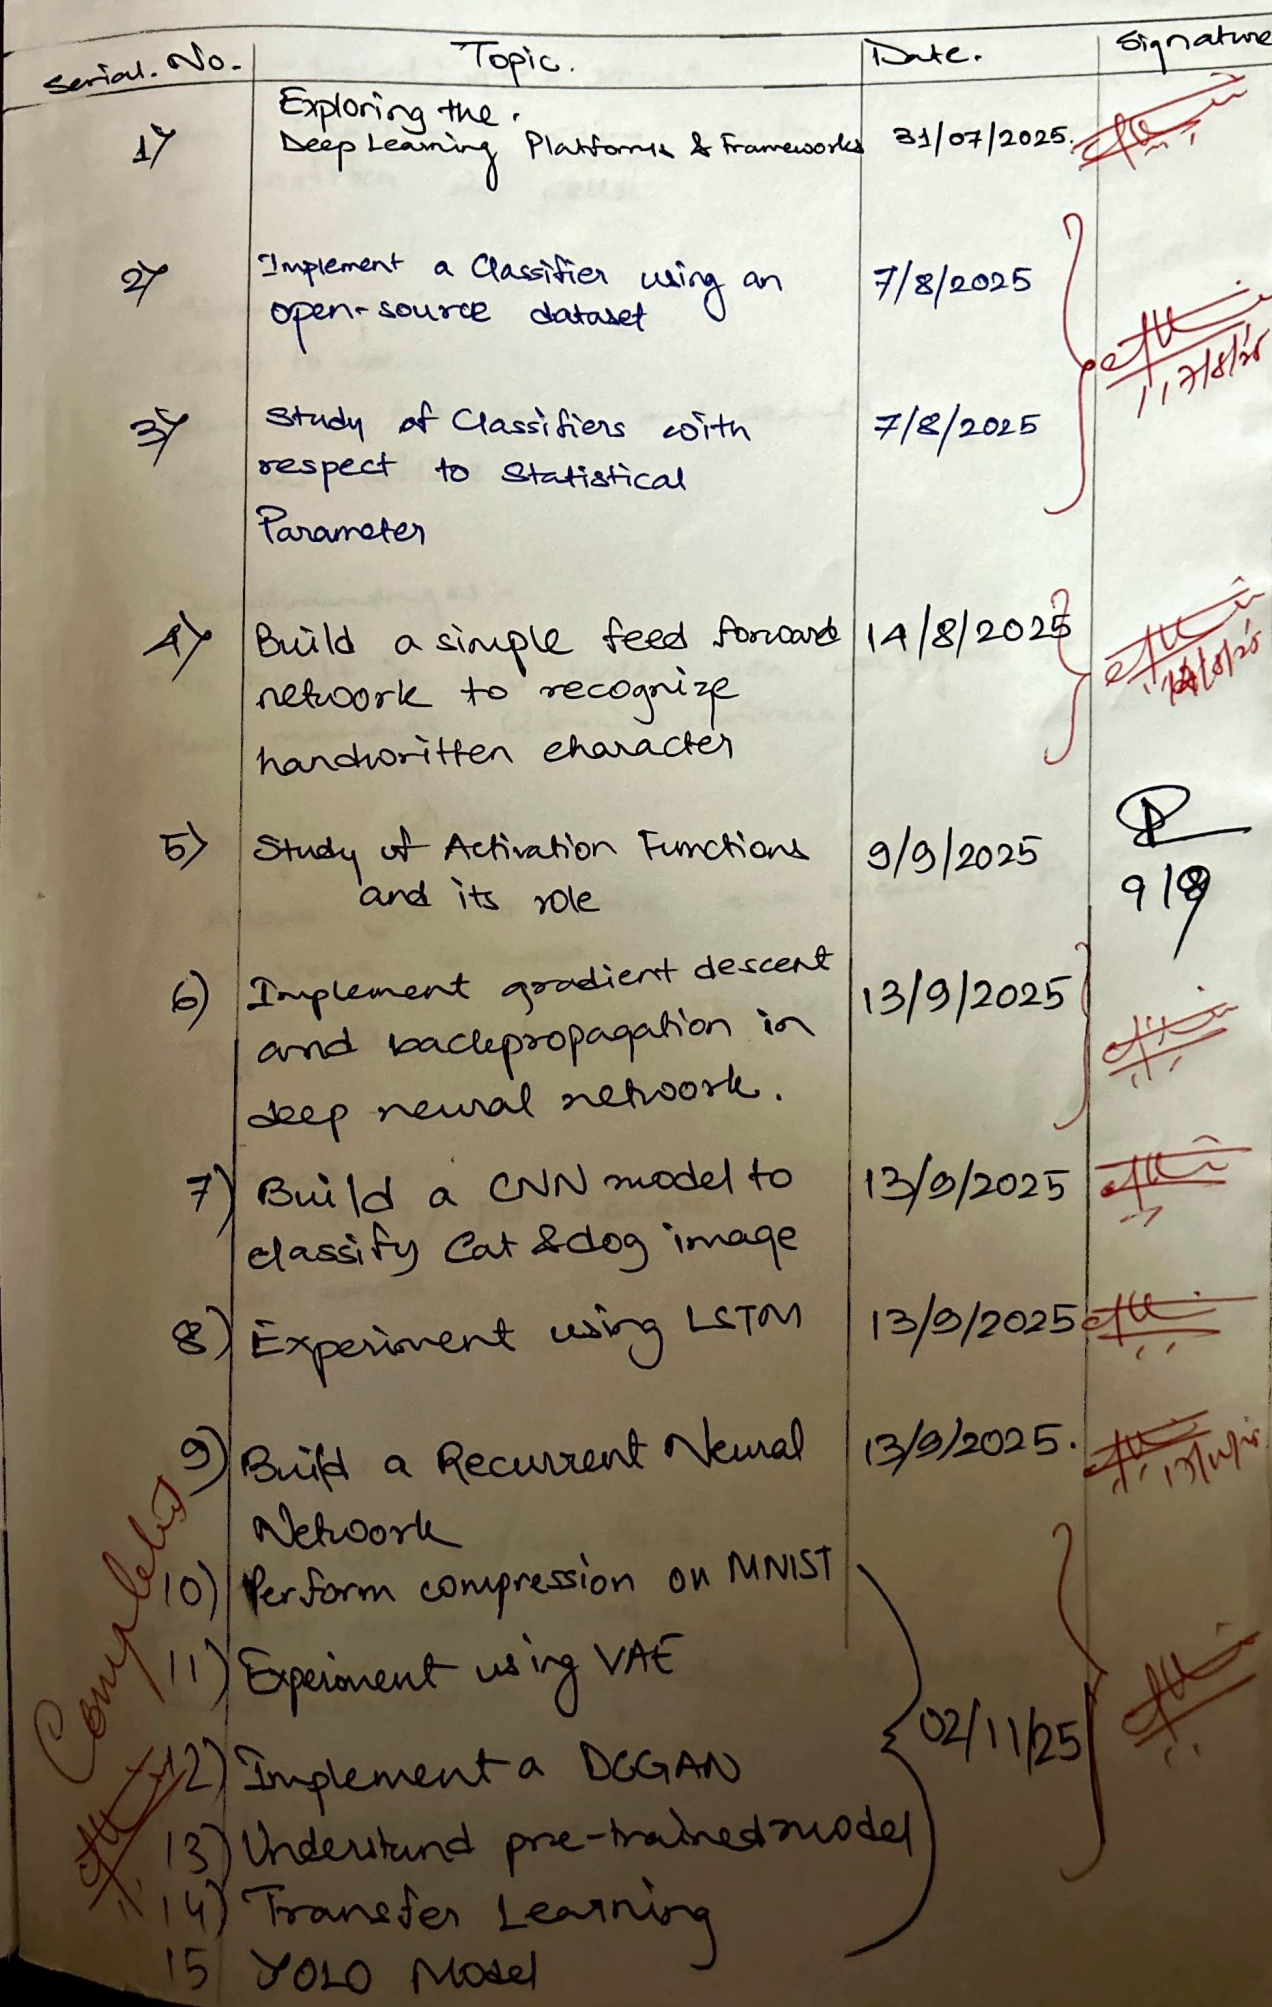 Serial. No. Topic. Date. Signature
Exploring the
1) Deep Learning Platforms & Frameworks 31/07/2025.
2) Implement a Classifier using an 7/8/2025
open-source dataset
7/8/25
3) Study of Classifiers with 7/8/2025
respect to Statistical
Parameter
4) Build a simple feed forward 14/8/2025
network to recognize
handwritten character
5) Study of Activation Functions 9/9/2025
and its role
6) Implement gradient descent 13/9/2025
and backpropagation in
deep neural network.
7) Build a CNN model to 13/9/2025
classify Cat & dog image
8) Experiment using LSTM 13/9/2025
9) Build a Recurrent Neural 13/9/2025.
Network
10) Perform compression on MNIST
11) Experiment using VAE
02/11/25
12) Implement a DCGAN
13) Understand pre-trained model
14) Transfer Learning
15 YOLO Model
Completed